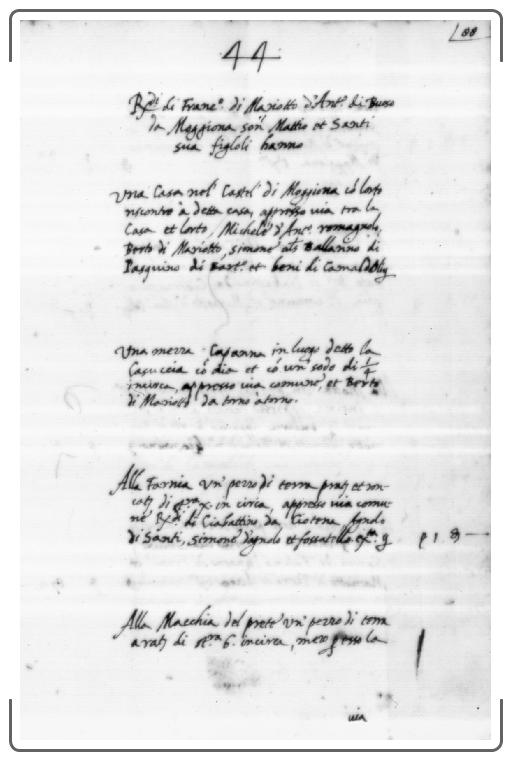 88
44
Rdi di Franc.º di Mariotto d'Ant.º di Buoso
da Moggiona sonº Mattio et Santi
sua figloli hanno
Una Casa nel' Castelº di Moggiona cº lorto
riscontro à detta casa, appresso via tra la
Casa et lorto, Michelº d'Antº romagnolo,
Berto di Mariotto, simone als Ballanno di
Pasquino di Bartº. et beni di Camaldoli
Una mezza Capanna in luogo detto la
Casuccia cº dia et cº un' sodo di 1/4
incirca, appresso via comune, et Berto
di Mariotto da torno àtorno.
Alla Farnia un' pezzo di terra et ron-
di x. in circa, appresso via comu-
ne Rdi di Ciabattino da Giotena
di Santi, simone d'agnolo et fossatello
p 1. 8
Alla Macchia del prete un' pezzo di terra
di 6. incirca, presso la
via